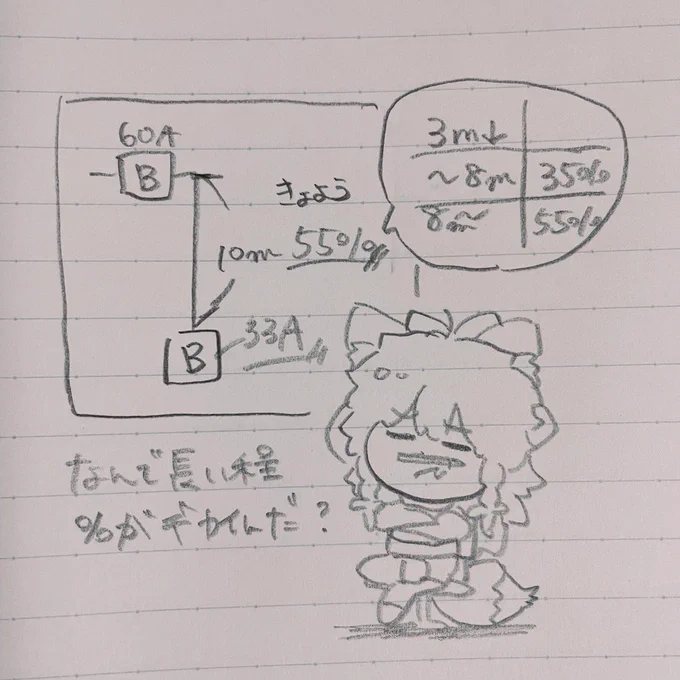 60A
B
きょよう
10m 55%
B
33A
3m↓
~8m 35%
8m~ 55%
なんで長い程
%がデカイんだ?